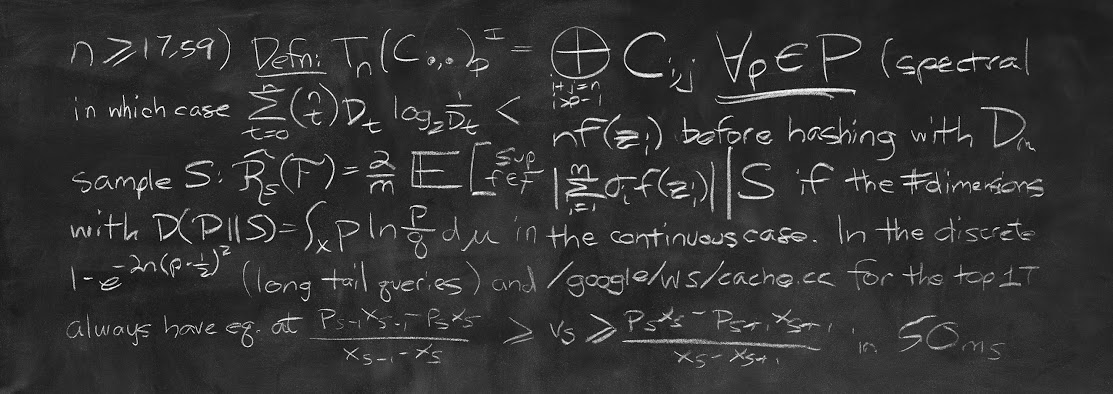 n ≥ 17.59) Defn: Tₙ(C.,.)ₚᴵ = ⊕_{i+j=n, i>0-1} C_{i,j} ∀p∈P (spectral
in which case Σ_{t=0}^{n} (n/t) D_t log₂ 1/D_t < nf(z_i) before hashing with D_m
sample S: R̂_s(F) = 2/m E[sup_{f∈F} |Σ_{i=1}^{m} σ_i f(z_i)| | S if the #dimensions
with D(P||S) = ∫_x p ln p/q dμ in the continuous case. In the discrete
1-e^{-2n(p-½)²} (long tail queries) and /google/ws/cache.cc for the top 1T
always have eq. at (P_{S-1}X_{S-1} - P_S X_S)/(X_{S-1} - X_S) ≥ V_S ≥ (P_S X_S - P_{S+1} X_{S+1})/(X_S - X_{S+1}) in 50ms